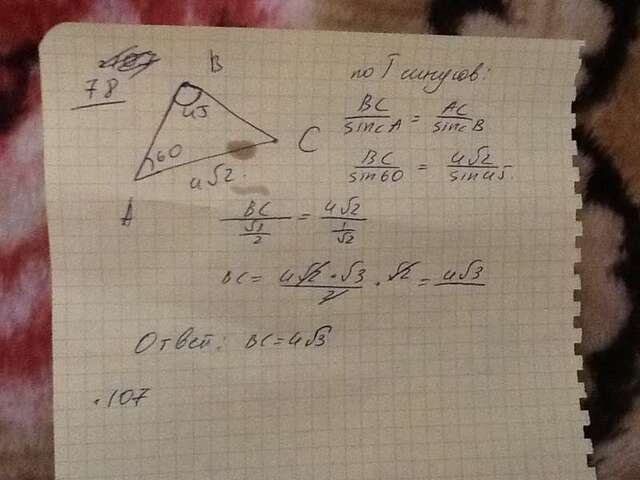 78
B
45
60
4√2.
C
A
по Т синусов:
BC/sin∠A = AC/sin∠B
BC/sin60 = 4√2/sin45.
BC/(√3/2) = 4√2/(1/√2)
BC = (4√2 · √3)/2 · √2 = 4√3
Ответ: BC = 4√3
.107